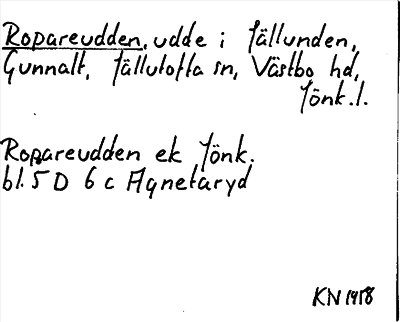 Ropareudden, udde i Fällunden,
Gunnalt, Källutofta sn, Västbo hd,
Jönk.l.
Ropareudden ek Jönk.
bl. 5 D 6 c Agnetaryd
KN 1958